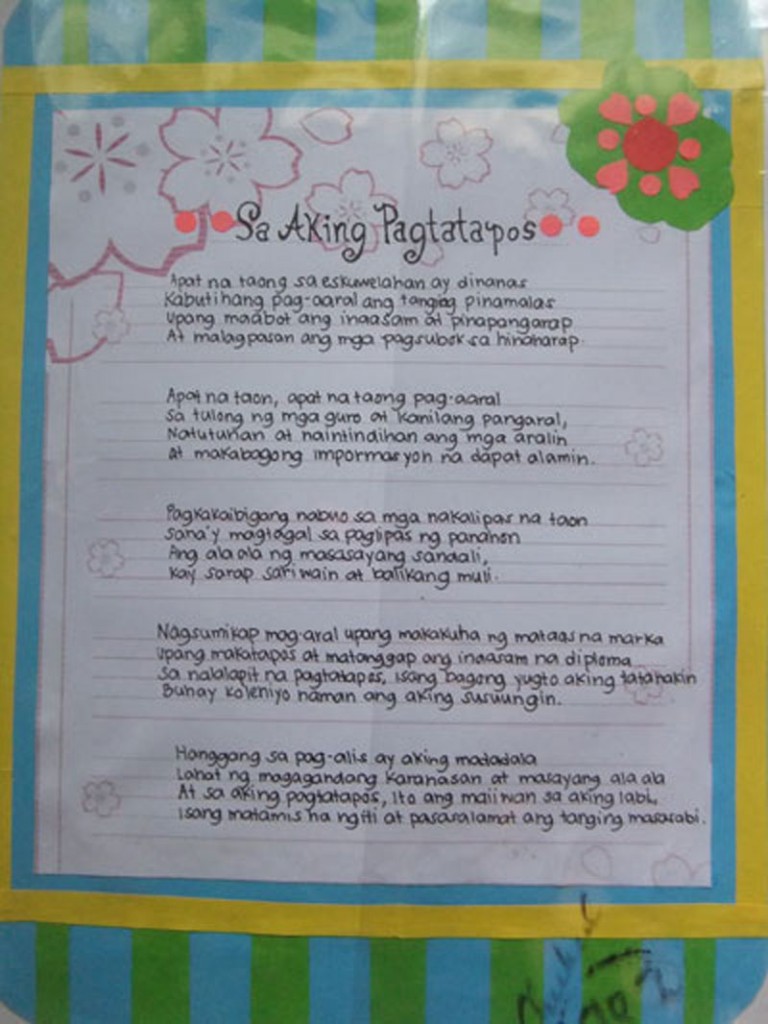 Sa Aking Pagtatapos
Apat na taong sa eskuwelahan ay dinanas
Kabutihang pag-aaral ang tanging pinamalas
Upang maabot ang inaasam at pinapangarap
At malagpasan ang mga pagsubok sa hinaharap.
Apat na taon, apat na taong pag-aaral
Sa tulong ng mga guro at kanilang pangaral,
Natutunan at naintindihan ang mga aralin
at makabagong impormasyon na dapat alamin.
Pagkakaibigang nabuo sa mga nakalipas na taon
Sana'y magtagal sa paglipas ng panahon
Ang alaala ng masasayang sandali,
Kay sarap sariwain at balikang muli.
Nagsumikap mag-aral upang makakuha ng mataas na marka
Upang makatapos at matanggap ang inaasam na diploma
Sa nalalapit na pagtatapos, isang bagong yugto aking tatahakin
Buhay kolehiyo naman ang aking susuungin.
Hanggang sa pag-alis ay aking madadala
Lahat ng magagandang karanasan at masayang alaala
At sa aking pagtatapos, ito ang maiiwan sa aking labi,
Isang matamis na ngiti at pasasalamat ang tanging masasabi.